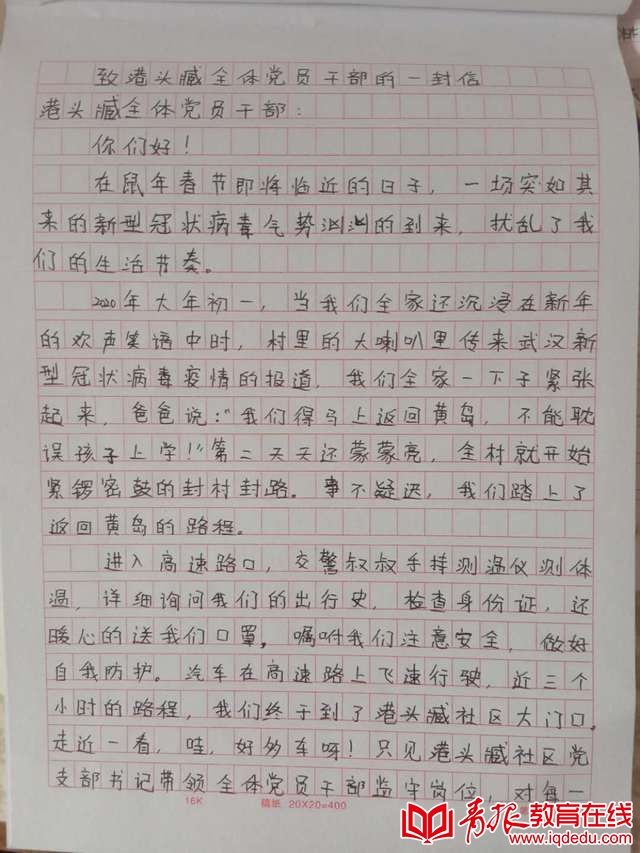 致港头臧全体党员干部的一封信
港头臧全体党员干部：
你们好！
在鼠年春节即将临近的日子，一场突如其
来的新型冠状病毒气势汹汹的到来，扰乱了我
们的生活节奏。
2020年大年初一，当我们全家还沉浸在新年
的欢声笑语中时，村里的大喇叭里传来武汉新
型冠状病毒疫情的报道，我们全家一下子紧张
起来，爸爸说："我们得马上返回黄岛，不能耽
误孩子上学！"第二天天还蒙蒙亮，全村就开始
紧锣密鼓的封村封路。事不疑迟，我们踏上了
返回黄岛的路程。
进入高速路口，交警叔叔手持测温仪测体
温，详细询问我们的出行史，检查身份证，还
暖心的送我们口罩。嘱咐我们注意安全，做好
自我防护。汽车在高速路上飞速行驶，近三个
小时的路程，我们终于到了港头臧社区大门口。
走近一看，哇，好多车呀！只见港头臧社区党
支部书记带领全体党员干部监守岗位，对每一
16K 稿纸 20×20=400
青报教育在线
www.iqdedu.com